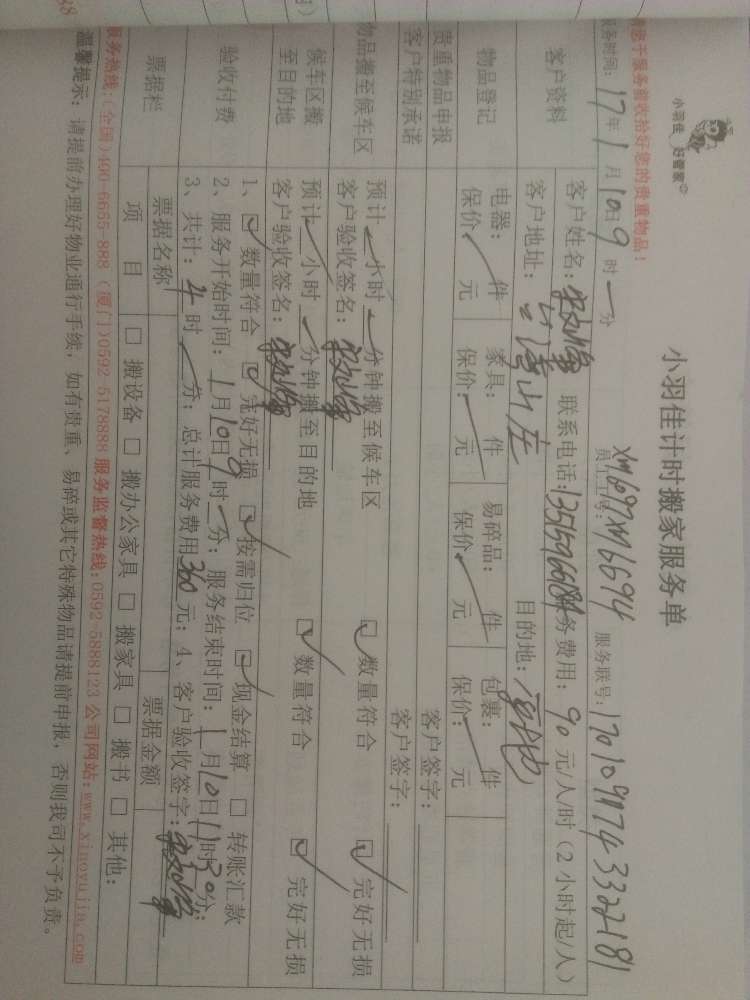 小羽佳 好管家
小羽佳计时搬家服务单
请您于服务前收拾好您的贵重物品！
服务时间：17年1月10日9时一分 员工工号：XM6097XM6694 服务联号：
客户资料 客户姓名： 联系电话： 服务费用：90元/人/时（2小时起/人）
客户地址： 山庄 目的地：
物品登记 电器：件 家具：件 易碎品：件 包裹：件
保价：元 保价：元 保价：元 保价：元
贵重物品申报 客户签字：
客户特别承诺 客户签字：
物品搬至候车区 预计 小时 分钟搬至候车区 ☑数量符合 ☑完好无损
客户验收签名：
候车区搬至目的地 预计 小时 分钟搬至目的地 ☑数量符合 ☑完好无损
客户验收签名：
验收付费 1、☑数量符合 ☑完好无损 ☑按需归位 ☑现金结算 □转账汇款
2、服务开始时间：1月10日9时一分；服务结束时间：1月10日11时30分；
3、共计：4时一分；总计服务费用360元；4、客户验收签字：
票据栏 票据名称 票据金额
项目 □搬设备 □搬办公家具 □搬家具 □搬书 □其他：
服务热线：（全国）400-6655-888（厦门）0592-5178888 服务监督热线：0592-5888123 公司网站：www.xiaoyujia.com
温馨提示：请提前办理好物业通行手续，如有贵重、易碎或其它特殊物品请提前申报，否则我司不予负责。